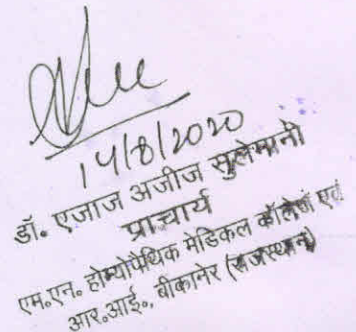 14/8/2020
डॉ. एजाज अजीज सुलेमानी
प्राचार्य
एम.एन. होम्योपैथिक मेडिकल कॉलेज एवं
आर.आई., बीकानेर (राजस्थान)